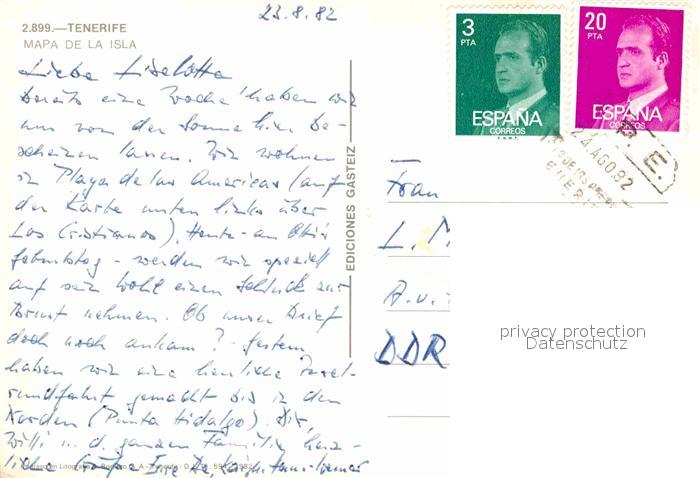 23.8.82
2.899.—TENERIFE
MAPA DE LA ISLA
Liebe Liselotte
bereits eine Woche haben wir
uns von der Sonne hier be-
scheinen lassen. Wir wohnen
in Playa de las Americas (auf
der Karte unten links über
Los Cristianos). Heute - an
geburtstag - werden wir speziell
auf sein Wohl einen Schluck zur
Brust nehmen. Ob unser Brief
doch noch ankam? - gestern
haben wir eine herrliche Insel-
rundfahrt gemacht bis in den
Norden (Punta Hidalgo). Dir,
Willi u. d. ganzen Familie herz-
liche Grüße
EDICIONES GASTEIZ
3
PTA
ESPAÑA
CORREOS
F.N.M.T.
20
PTA
ESPAÑA
CORREOS
24 AGO 82
Frau
L. M
A.
DDR
privacy protection
Datenschutz